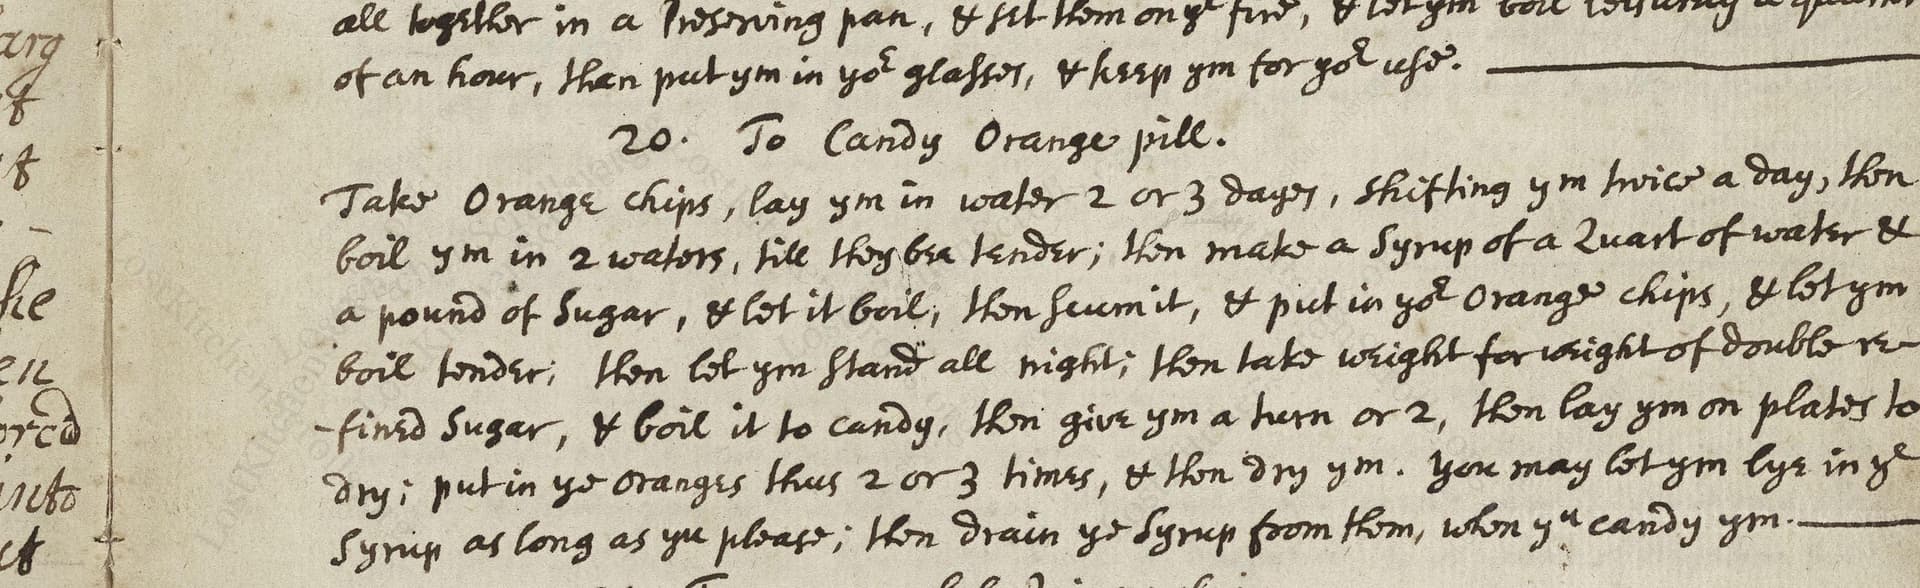 all together in a Preserving pan, & set them on yͤ fire, & let ym boil leisurely a quarter
of an hour, then put ym in yoͬ glasses, & keep ym for yoͬ use.
20. To Candy Orange pill.
Take Orange chips, lay ym in water 2 or 3 dayes, shifting ym twice a day, then
boil ym in 2 waters, till they bee tender; then make a Syrup of a Quart of water &
a pound of Sugar, & let it boil, then scum it, & put in yoͬ Orange chips, & let ym
boil tender; then let ym stand all night; then take weight for weight of double re-
-fined Sugar, & boil it to candy, then give ym a turn or 2, then lay ym on plates to
dry; put in ye oranges thus 2 or 3 times, & then dry ym. You may let ym lye in yͤ
Syrup as long as yu please; then drain ye Syrup from them, when yͧ candy ym.